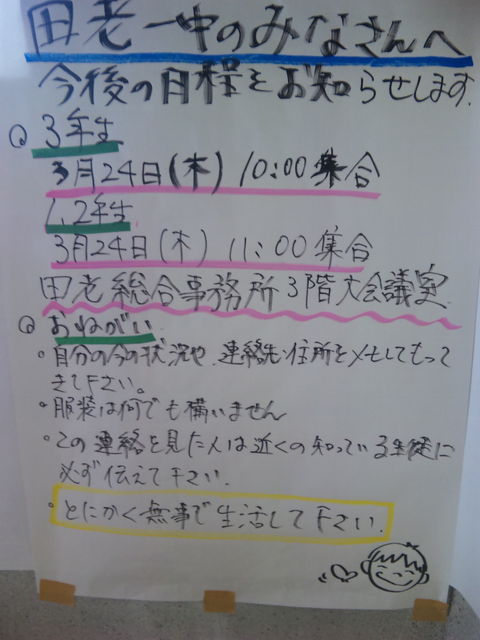 田老一中のみなさんへ
今後の日程をお知らせします.
3年生
3月24日(木) 10:00集合
1,2年生
3月24日(木) 11:00集合
田老総合事務所3階大会議実
おねがい
・自分の今の状況や、連絡先・住所をメモしてもって
きて下さい。
・服装は何でも構いません
・この連絡を見た人は近くの知っている生徒に
必ず伝えて下さい.
・とにかく無事で生活して下さい.